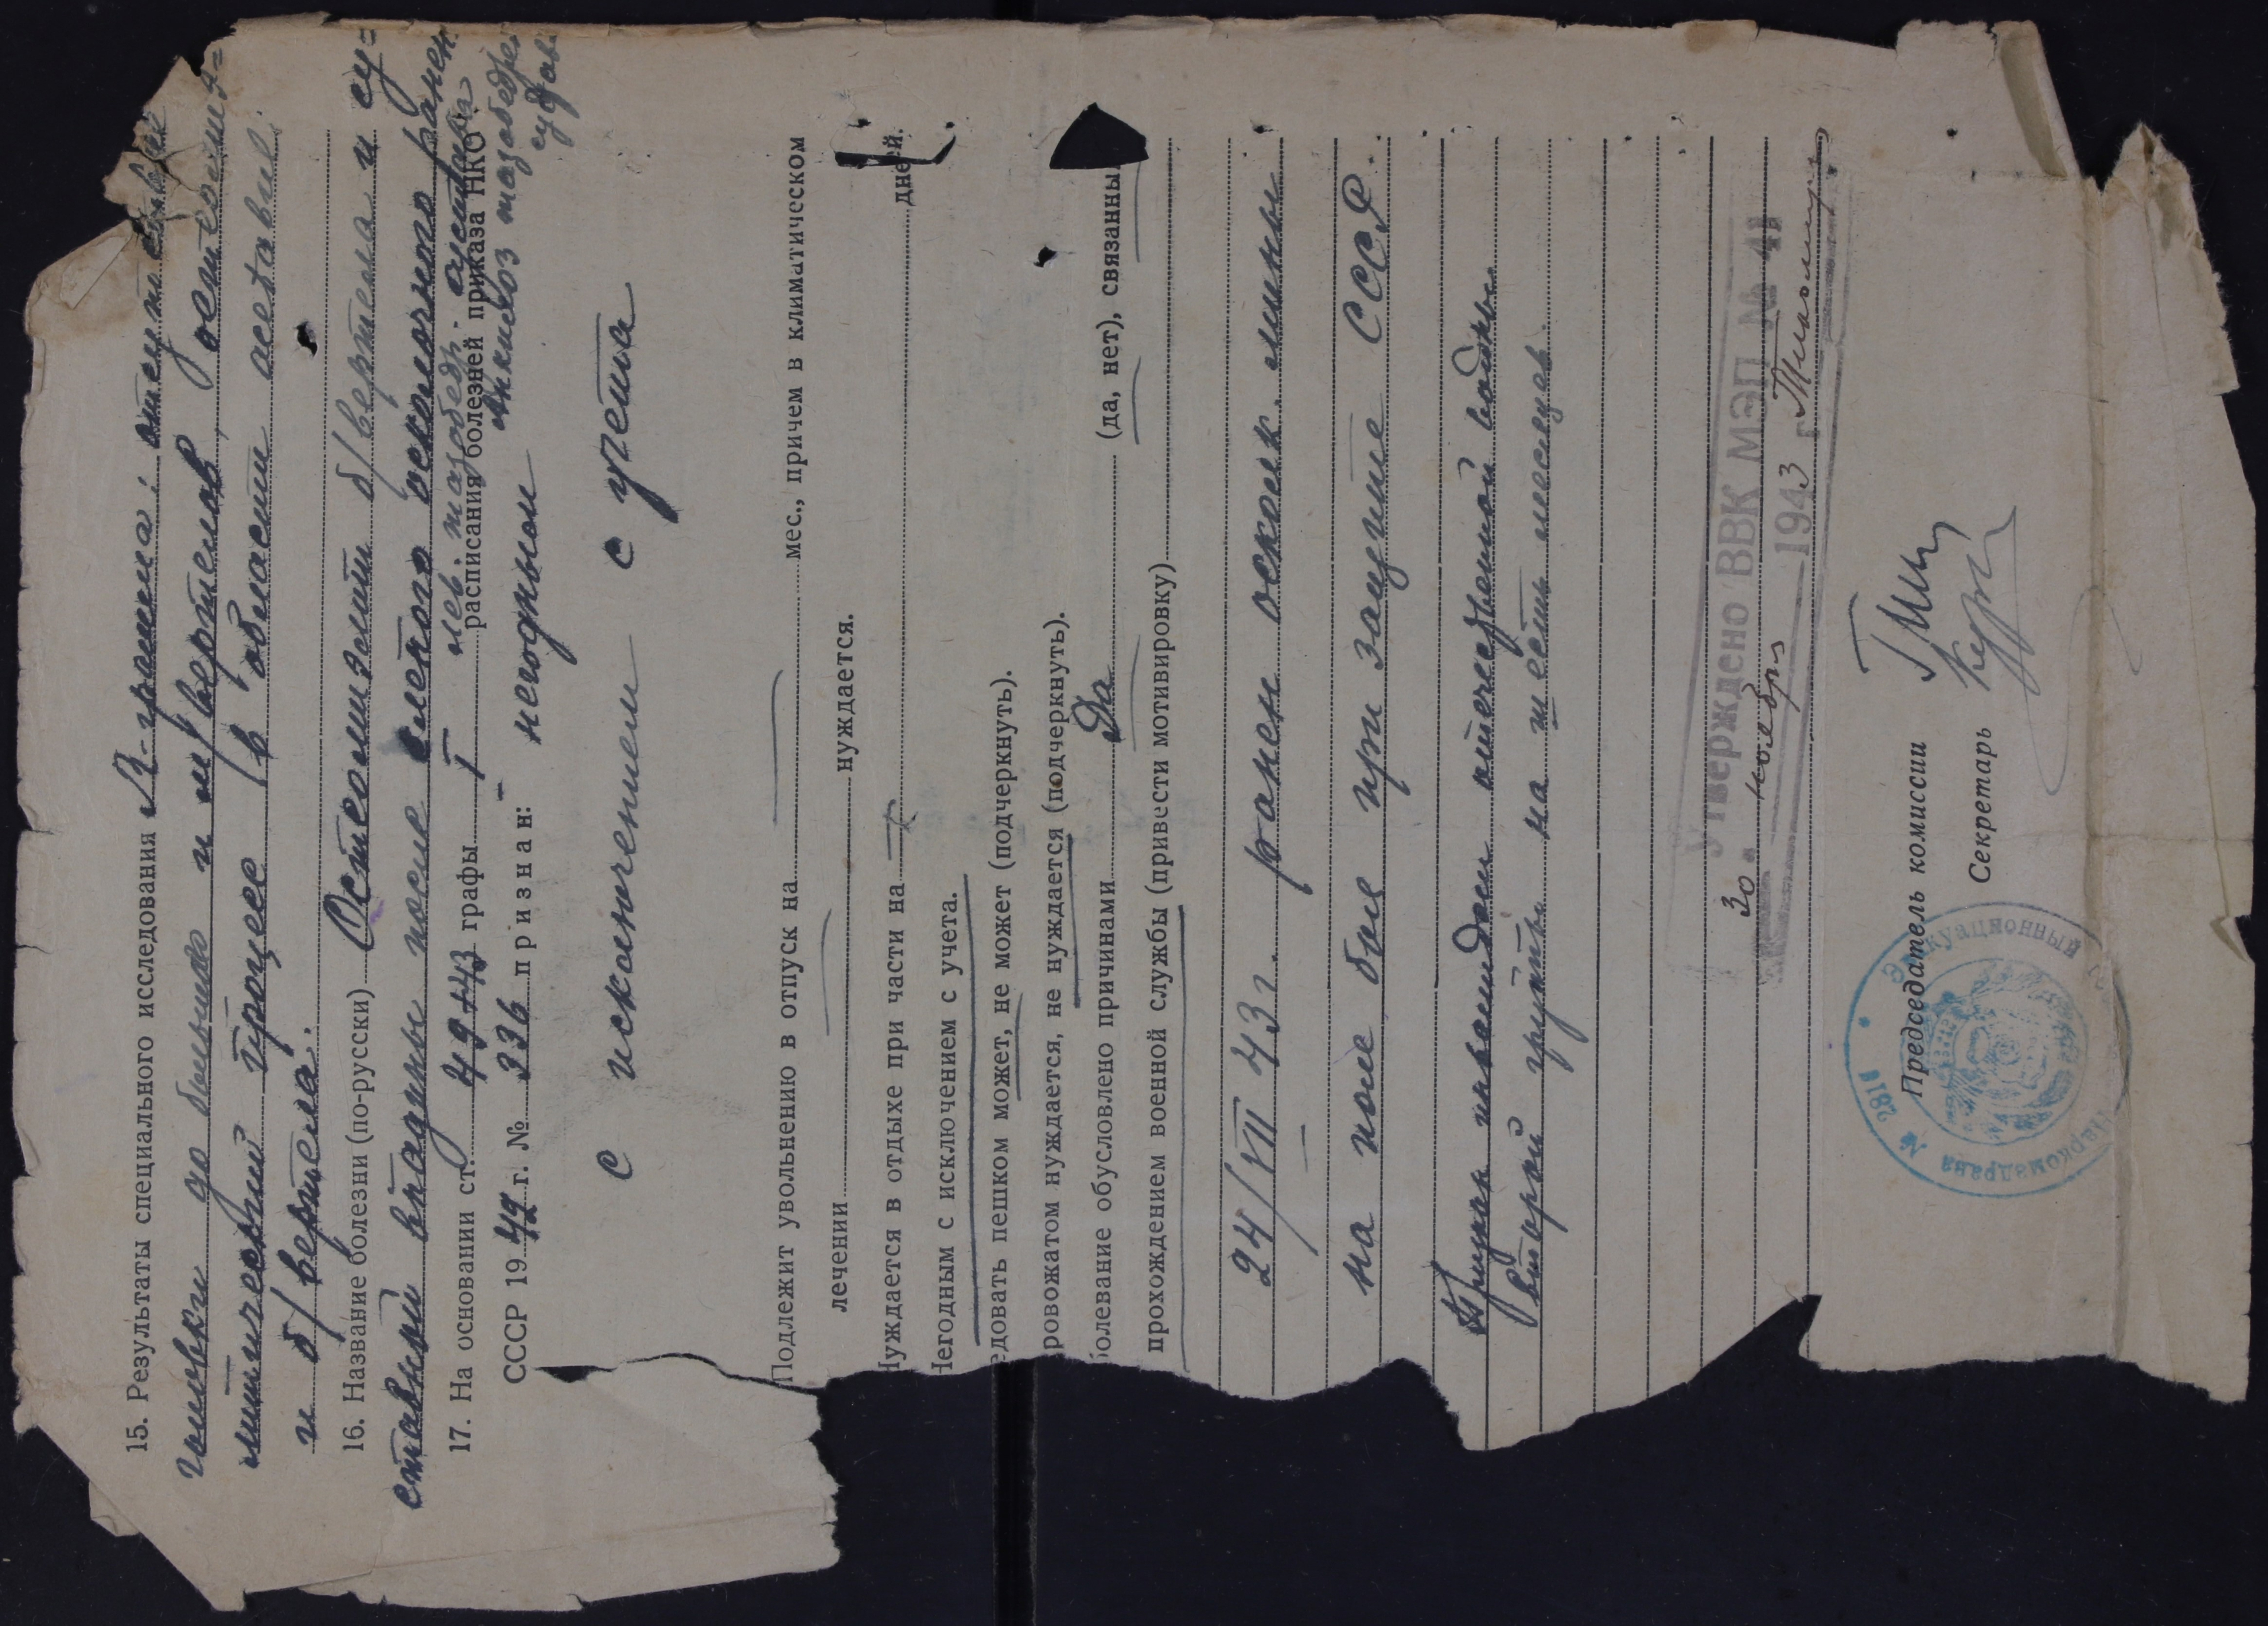 15. Результаты специального исследования R-грамма: отсутствие
головки до больш. и м/вертелов, остеомие-
литический процесс в области ацетабул.
и б/вертела.
16. Название болезни (по-русски) Остеомиэлит б/вертела и су-
ставной впадины после слепого осколочного ранен.
лев. тазобедр. сустава
Анкилоз тазобедрен.
сустава
17. На основании ст. 49 графы I расписания болезней приказа НКО
СССР 1942 г. № 336 признан: негодным
с исключением с учета
Подлежит увольнению в отпуск на мес., причем в климатическом
лечении нуждается.
Нуждается в отдыхе при части на дней.
Негодным с исключением с учета.
едовать пешком может, не может (подчеркнуть).
ровожатом нуждается, не нуждается (подчеркнуть).
болевание обусловлено причинами Да (да, нет), связанны
прохождением военной службы (привести мотивировку)
24/VII 43 г. ранен осколк. мины
на поле боя при защите СССР.
Признан инвалидом отечественной войны
второй группы на шесть месяцев.
Утверждено ВВК МЭП № 41
30. ноября 1943 г.
Председатель комиссии
Секретарь
Эвакуационный
Наркомздрава № 2818